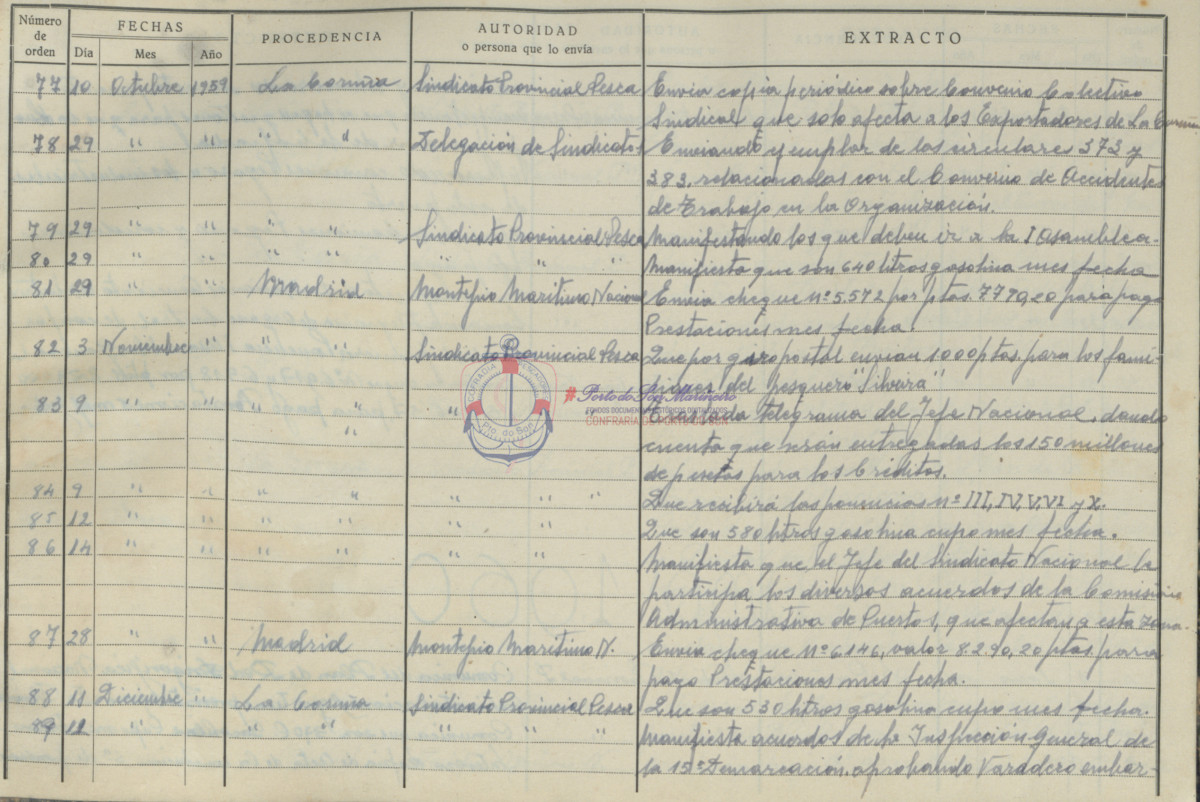 Número de orden | FECHAS | PROCEDENCIA | AUTORIDAD o persona que lo envía | EXTRACTO
Dia | Mes | Año
77 10 Octubre 1959 La Coruña Sindicato Provincial Pesca Envia copia periódico sobre Convenio Colectivo
Sindical que solo afecta a los Exportadores de La Coruña
78 29 " " " " Delegación de Sindicatos Enviando ejemplar de las circulares 373 y
383, relacionadas con el Convenio de Accidentes
de Trabajo en la Organización.
79 29 " " " " Sindicato Provincial Pesca Manifestando los que deben ir a la I Asamblea.
80 29 " " " " " " " Manifiesta que son 640 litros gasolina mes fecha
81 29 " " Madrid Montepio Maritimo Nacional Envia cheque nº 5.572 por ptas. 7779,20 para pago
Prestaciones mes fecha.
82 3 Noviembre " " " Sindicato Provincial Pesca Que por giro postal envian 1000 ptas. para los fami-
liares del pesquero "Silvura"
83 9 " " " " " Traslada telegrama del Jefe Nacional, dando
" cuenta que serán entregadas los 150 millones
de pesetas para los Créditos.
84 9 " " " " " " Que recibirá las ponencias nº III, IV, V, VI y X.
85 12 " " " " " " Que son 580 litros gasolina cupo mes fecha.
86 14 " " " " " " Manifiesta que el Jefe del Sindicato Nacional le
participa los diversos acuerdos de la Comisión
Administrativa de Puertos, que afectan a esta zona.
87 28 " " Madrid Montepio Maritimo N. Envia cheque nº 6146, valor 8.290,20 ptas. para
pago Prestaciones mes fecha.
88 11 Diciembre " La Coruña Sindicato Provincial Pesca Que son 530 litros gasolina cupo mes fecha.
89 11 " " " " " " " Manifiesta acuerdos de la Inspección General de
la 15ª Demarcación, aprobando Varadero embar-
COFRADIA PESCADORES
Pto. do Son
#Porto do Son Mariñeiro
FONDOS DOCUMENTAIS HISTÓRICOS DIXITALIZADOS
CONFRARÍA DE PORTO DO SON